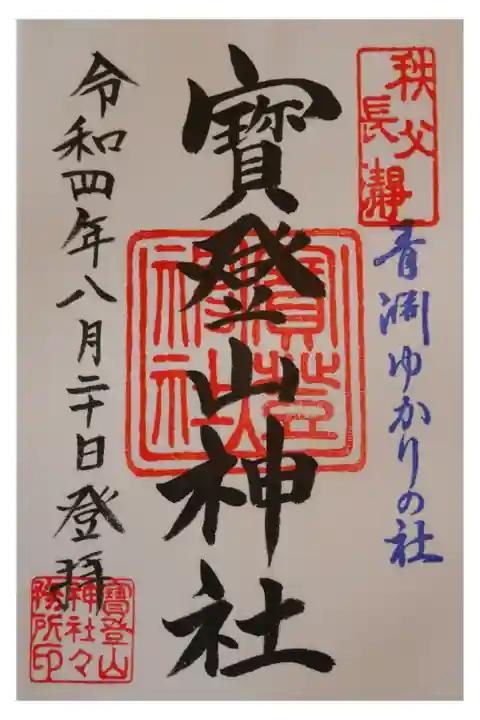 秩父
長瀞
青淵ゆかりの社
寳登山神社
寳登山神社
令和四年八月二十日登拝
寳登山
神社々
務所印